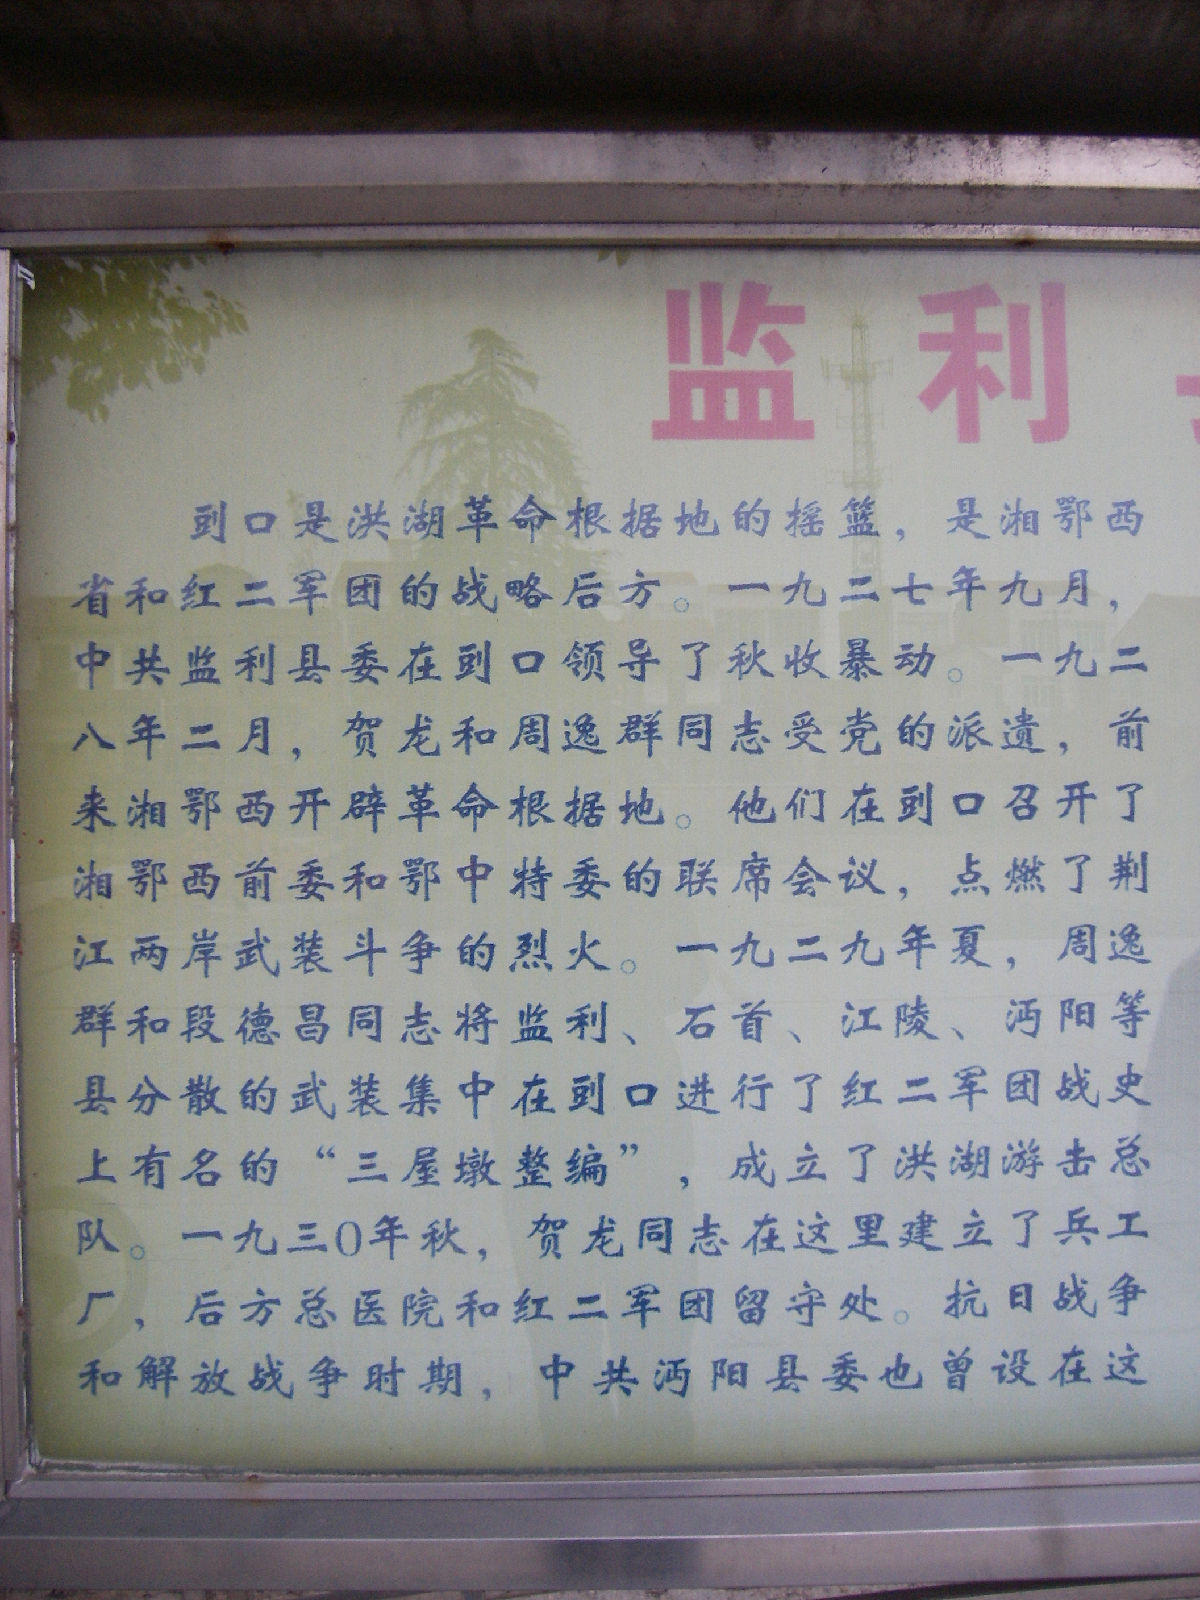 监利
剅口是洪湖革命根据地的摇篮，是湘鄂西
省和红二军团的战略后方。一九二七年九月，
中共监利县委在剅口领导了秋收暴动。一九二
八年二月，贺龙和周逸群同志受党的派遣，前
来湘鄂西开辟革命根据地。他们在剅口召开了
湘鄂西前委和鄂中特委的联席会议，点燃了荆
江两岸武装斗争的烈火。一九二九年夏，周逸
群和段德昌同志将监利、石首、江陵、沔阳等
县分散的武装集中在剅口进行了红二军团战史
上有名的“三屋墩整编”，成立了洪湖游击总
队。一九三0年秋，贺龙同志在这里建立了兵工
厂，后方总医院和红二军团留守处。抗日战争
和解放战争时期，中共沔阳县委也曾设在这